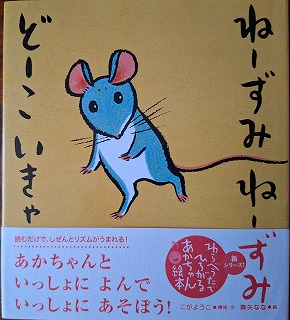 ねーずみ ねーずみ
どーこ いきゃ
読むだけで、しぜんとリズムがうまれる!
あかちゃんと
いっしょに よんで
いっしょに あそぼう!
新シリーズ!
わらべうたで
ひろがる
あかちゃん
絵本
こがようこ●構成・文 降矢なな●絵